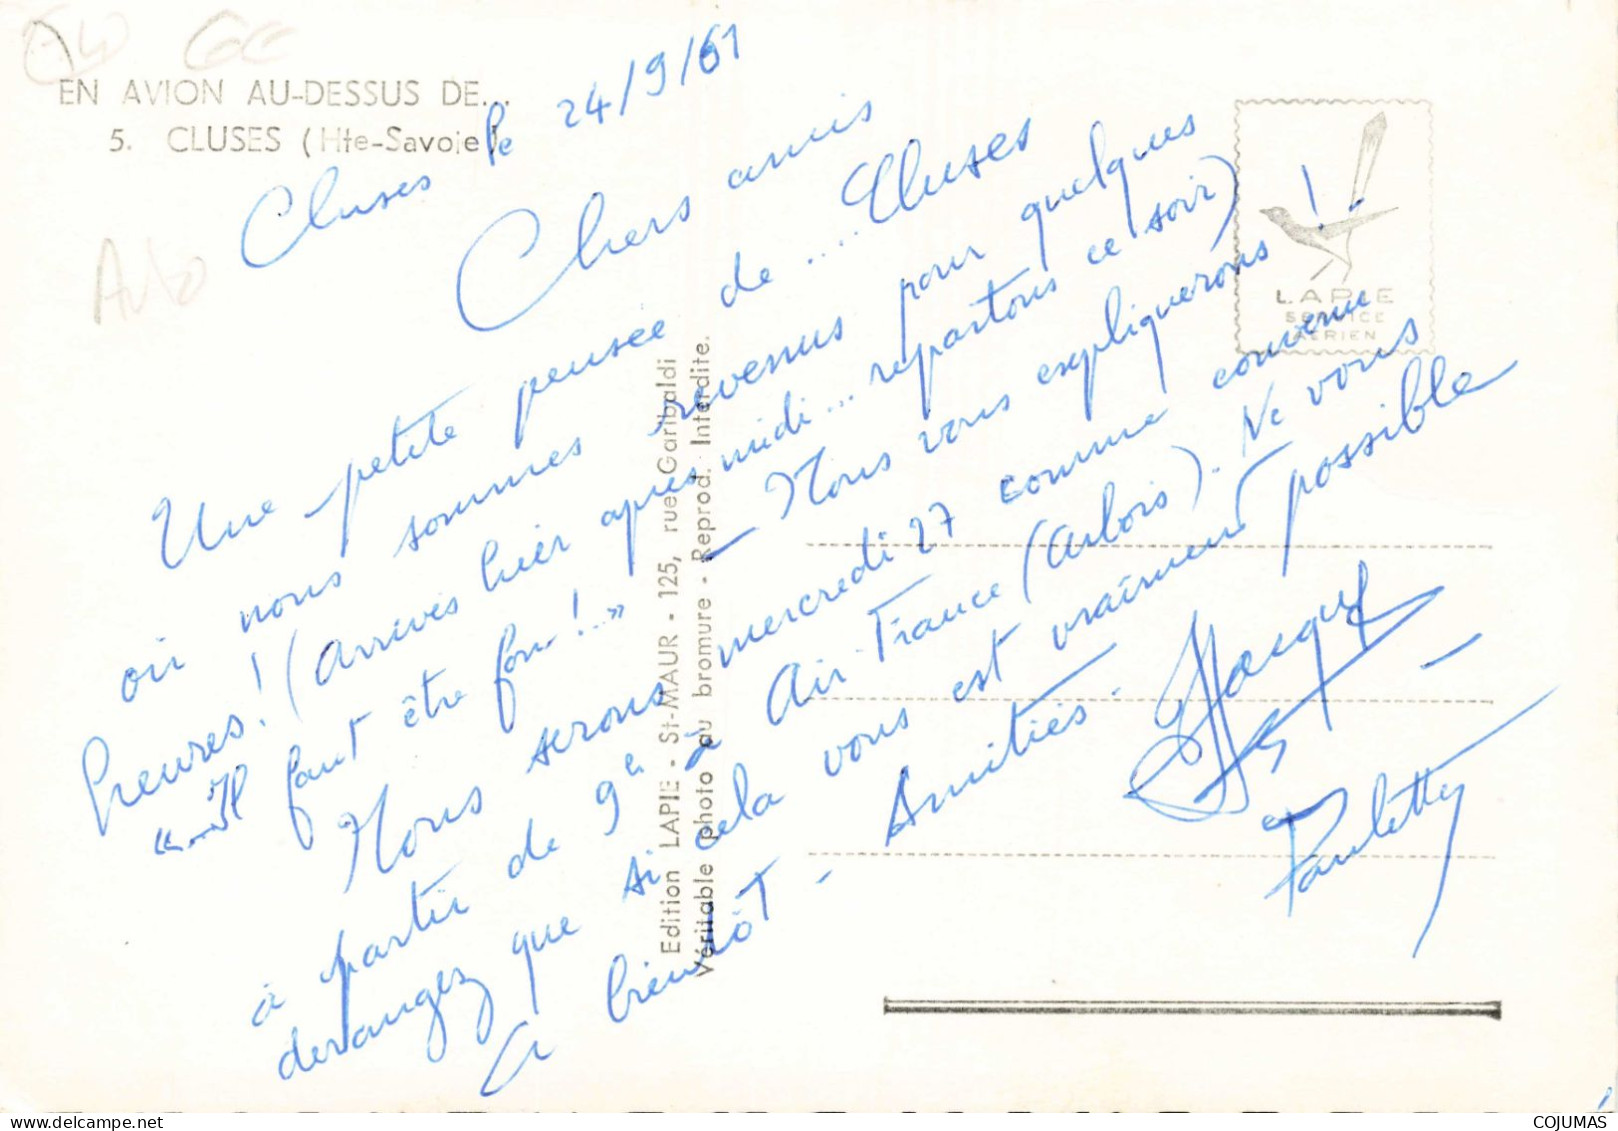 EN AVION AU-DESSUS DE...
5. CLUSES (Hte-Savoie)
Cluses le 24/9/61
Chers amis
Une petite pensée de ..... Cluses
où nous sommes revenus pour quelques
heures! (Arrivés hier après midi... repartons ce soir)
"...Il faut être fou!..." — Nous vous expliquerons!
Nous serons mercredi 27 comme convenu
à partir de 9h à Air-France (Arbois). Ne vous
derangez que si cela vous est vraiment possible
A bientôt - Amitiés.
Jacques
Paulette
Edition LAPIE - St-MAUR - 125, rue Garibaldi
Véritable photo au bromure - Reprod. Interdite.
LAPIE
SERVICE
AÉRIEN
COJUMAS